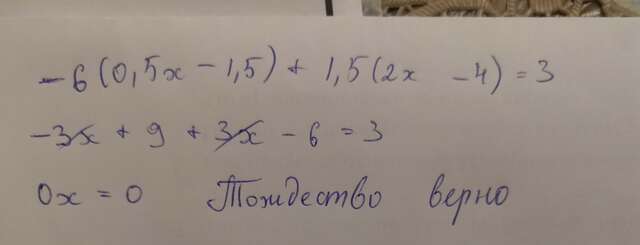 -6(0,5x - 1,5) + 1,5(2x - 4) = 3
-3x + 9 + 3x - 6 = 3
0x = 0 Тождество верно